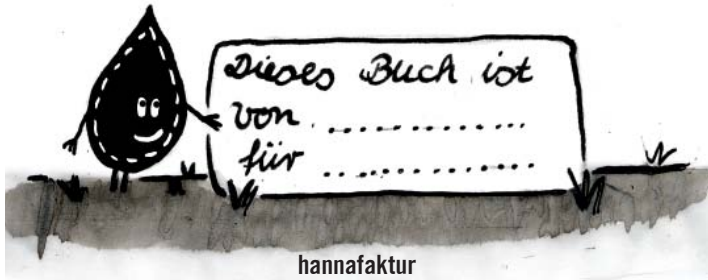 Dieses Buch ist
von ..............
für ..............
hannafaktur